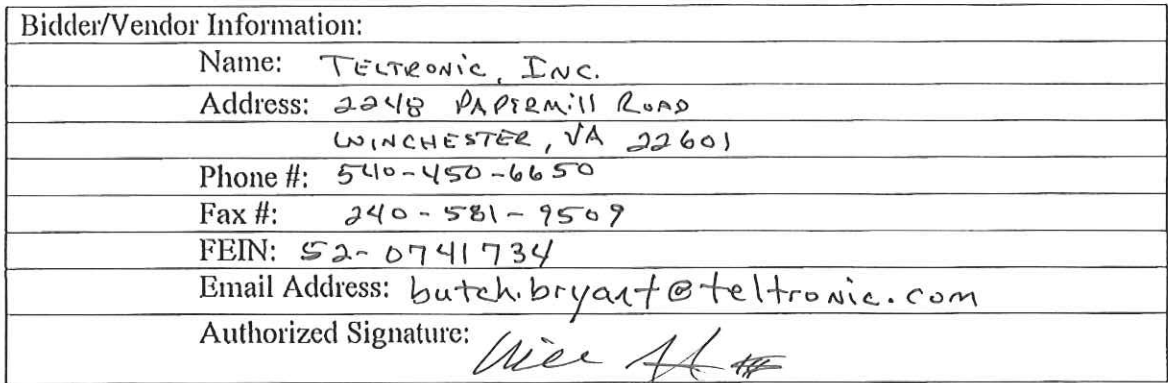 Bidder/Vendor Information:
Name: TELTRONIC, INC.
Address: 2248 PAPERMILL ROAD
WINCHESTER, VA 22601
Phone #: 540-450-6650
Fax #: 240-581-9509
FEIN: 52-0741734
Email Address: butch.bryant@teltronic.com
Authorized Signature: